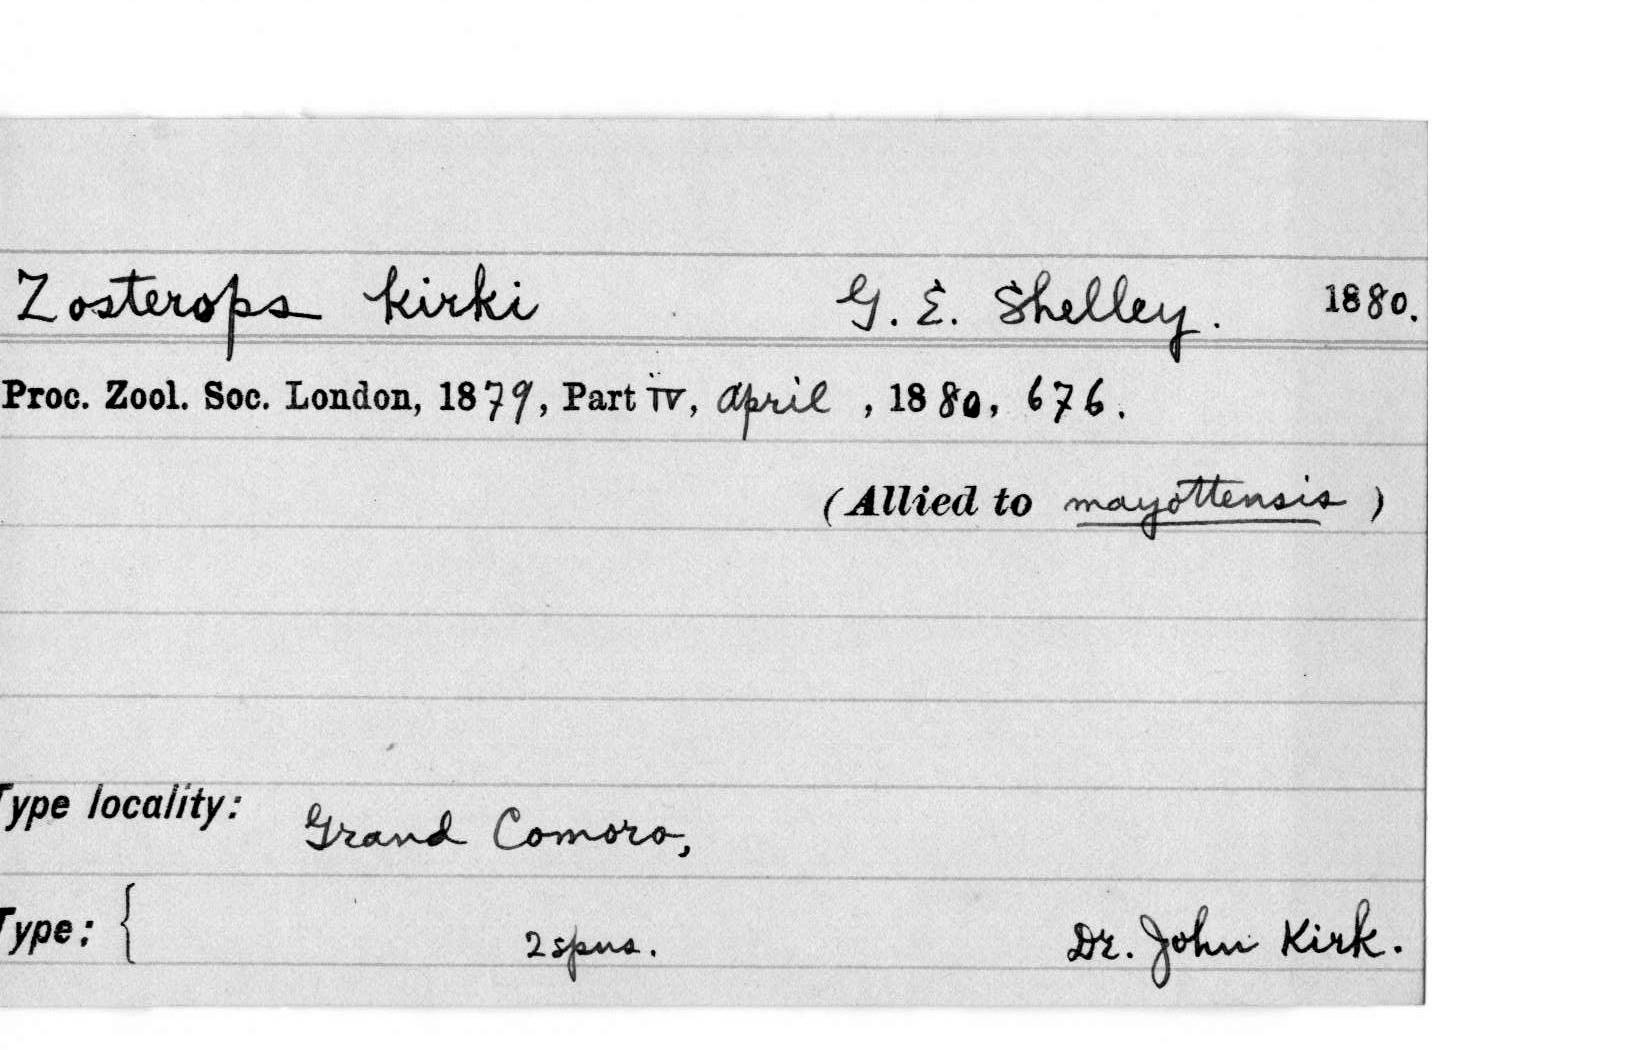 Zosterops kirki G. E. Shelley. 1880.
Proc. Zool. Soc. London, 1879, Part iv, april , 1880, 676.
(Allied to mayottensis )
Type locality: Grand Comoro,
Type: { 2 spns. Dr. John Kirk.